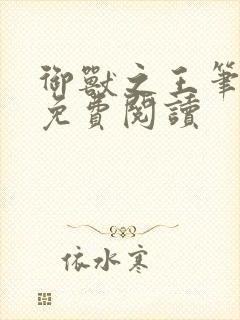 御獸之王筆
免費閱讀
依水寒